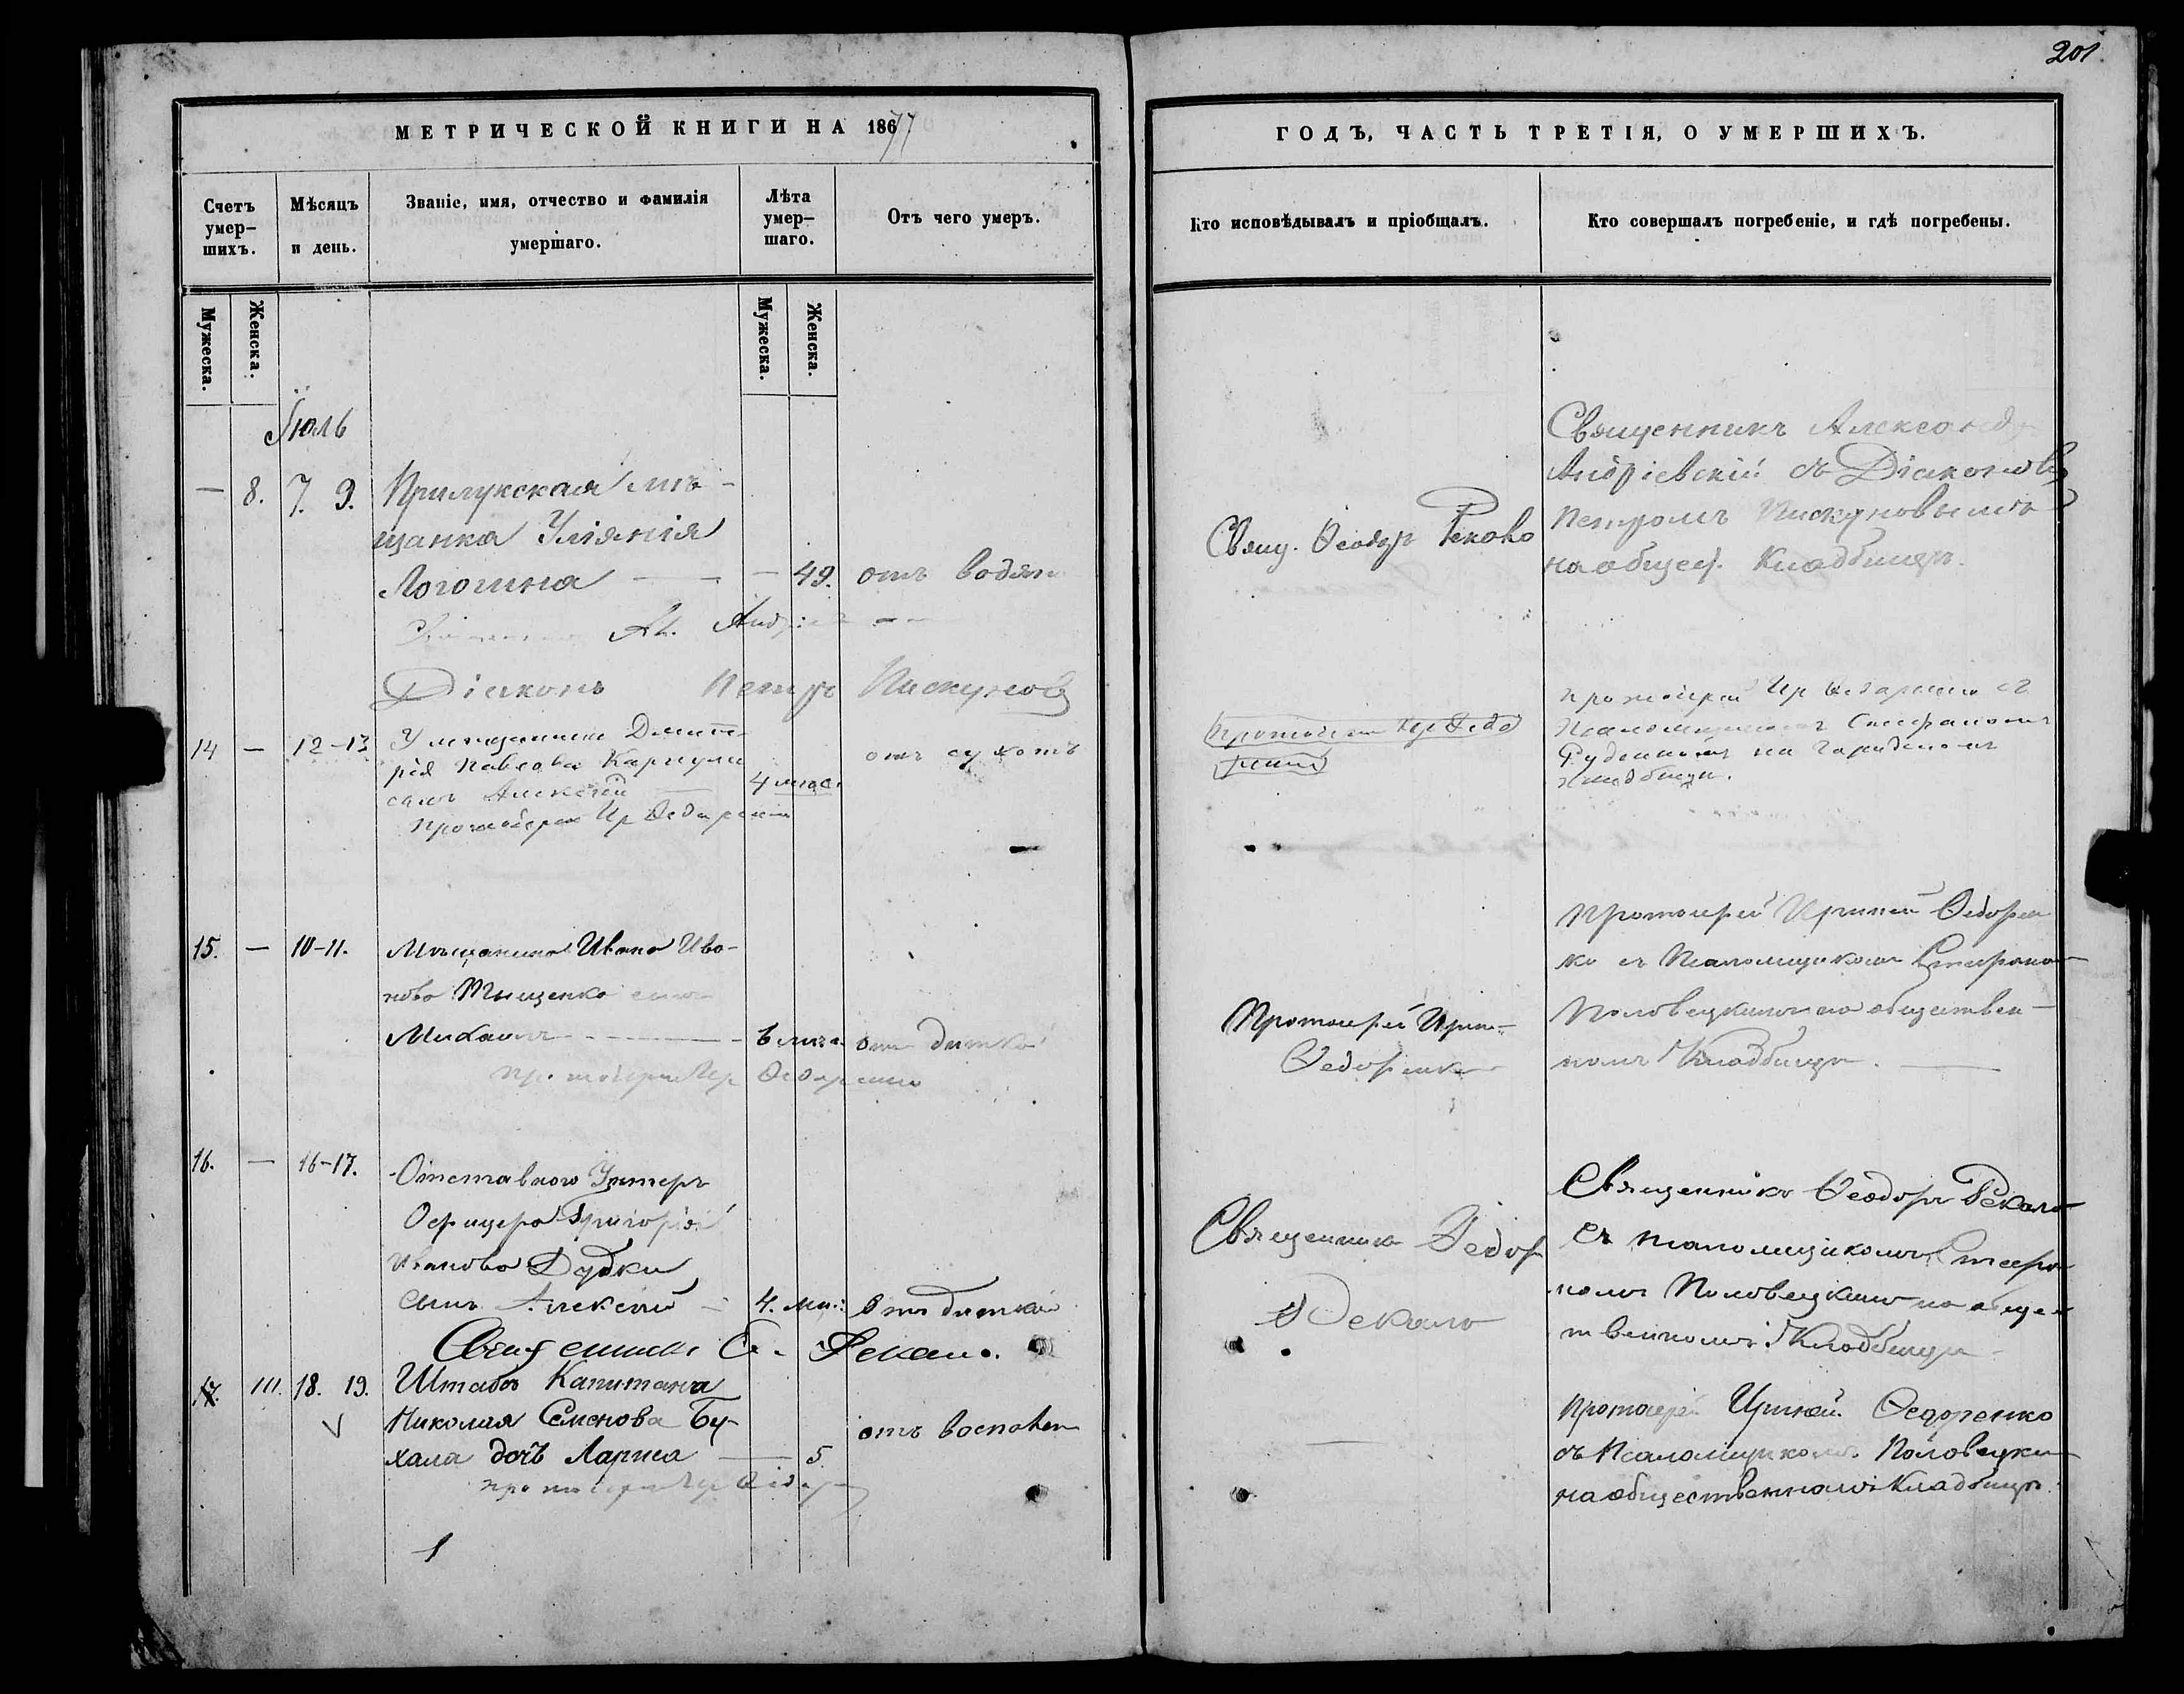 201
МЕТРИЧЕСКОЙ КНИГИ НА 1877
ГОДЪ, ЧАСТЬ ТРЕТІЯ, О УМЕРШИХЪ.
Счетъ умер-шихъ.
Мѣсяцъ и день.
Званіе, имя, отчество и фамилія умершаго.
Лѣта умер-шаго.
Отъ чего умеръ.
Кто исповѣдывалъ и пріобщалъ.
Кто совершалъ погребеніе, и гдѣ погребены.
Мужеска.
Женска.
Мужеска.
Женска.
Іюль
— 8. 7. 9. Прилукская мѣ-
щанка Уліянія
Логогина — — 49. отъ водян
Ал.
Діаконъ Петръ Пискуновъ
Свящ. Ѳеодоръ Рекало
Священникъ Александ
Андріевскій съ Діакономъ
Петромъ Пискуновымъ
на общес. Кладбищѣ.
14 — 12-13 У мещанина Дмит-
рія Павлова
сынъ Алексѣй 4 мѣс.
Протоіерей Ир Ѳедоренко
отъ сухотъ
Протоіерей Ир Ѳедо
ренко
Протоіерей Ир Ѳедоренко съ
Псаломщикомъ Стефаномъ
Руденкомъ на Городскомъ
кладбищѣ.
15. — 10-11. Мѣщанина Ивана Ива-
нова Тищенко сынъ
Михаилъ — 6 мѣс. отъ
Протоіерей Ир Ѳедоренко
Протоіерей Ирин.
Ѳедоренко
Протоіерей Ириней Ѳедорен
ко съ Псаломщикомъ Стефаном
Половецкимъ на обществен-
номъ Кладбищѣ. —
16. — 16-17. Отставного Унтеръ
Офицера Григорія
Иванова Дудки
сынъ Алексѣй — 4. мѣ:
Священникъ Ѳ. Рекало.
Священникъ Ѳедор
Рекало
Священникъ Ѳеодоръ Рекало
съ псаломщикомъ Стефа
номъ Половецкимъ на общес
твенномъ Кладбищѣ
17. 18. 19. Штабъ Капитана
Николая Семенова Бу-
хала дочь Лариса — 5
отъ воспален
Протоіерей Ир Ѳедор
Протоіерей Ириней Ѳедоренко
съ Псаломщикомъ Половецки
на общественномъ Кладбищѣ.